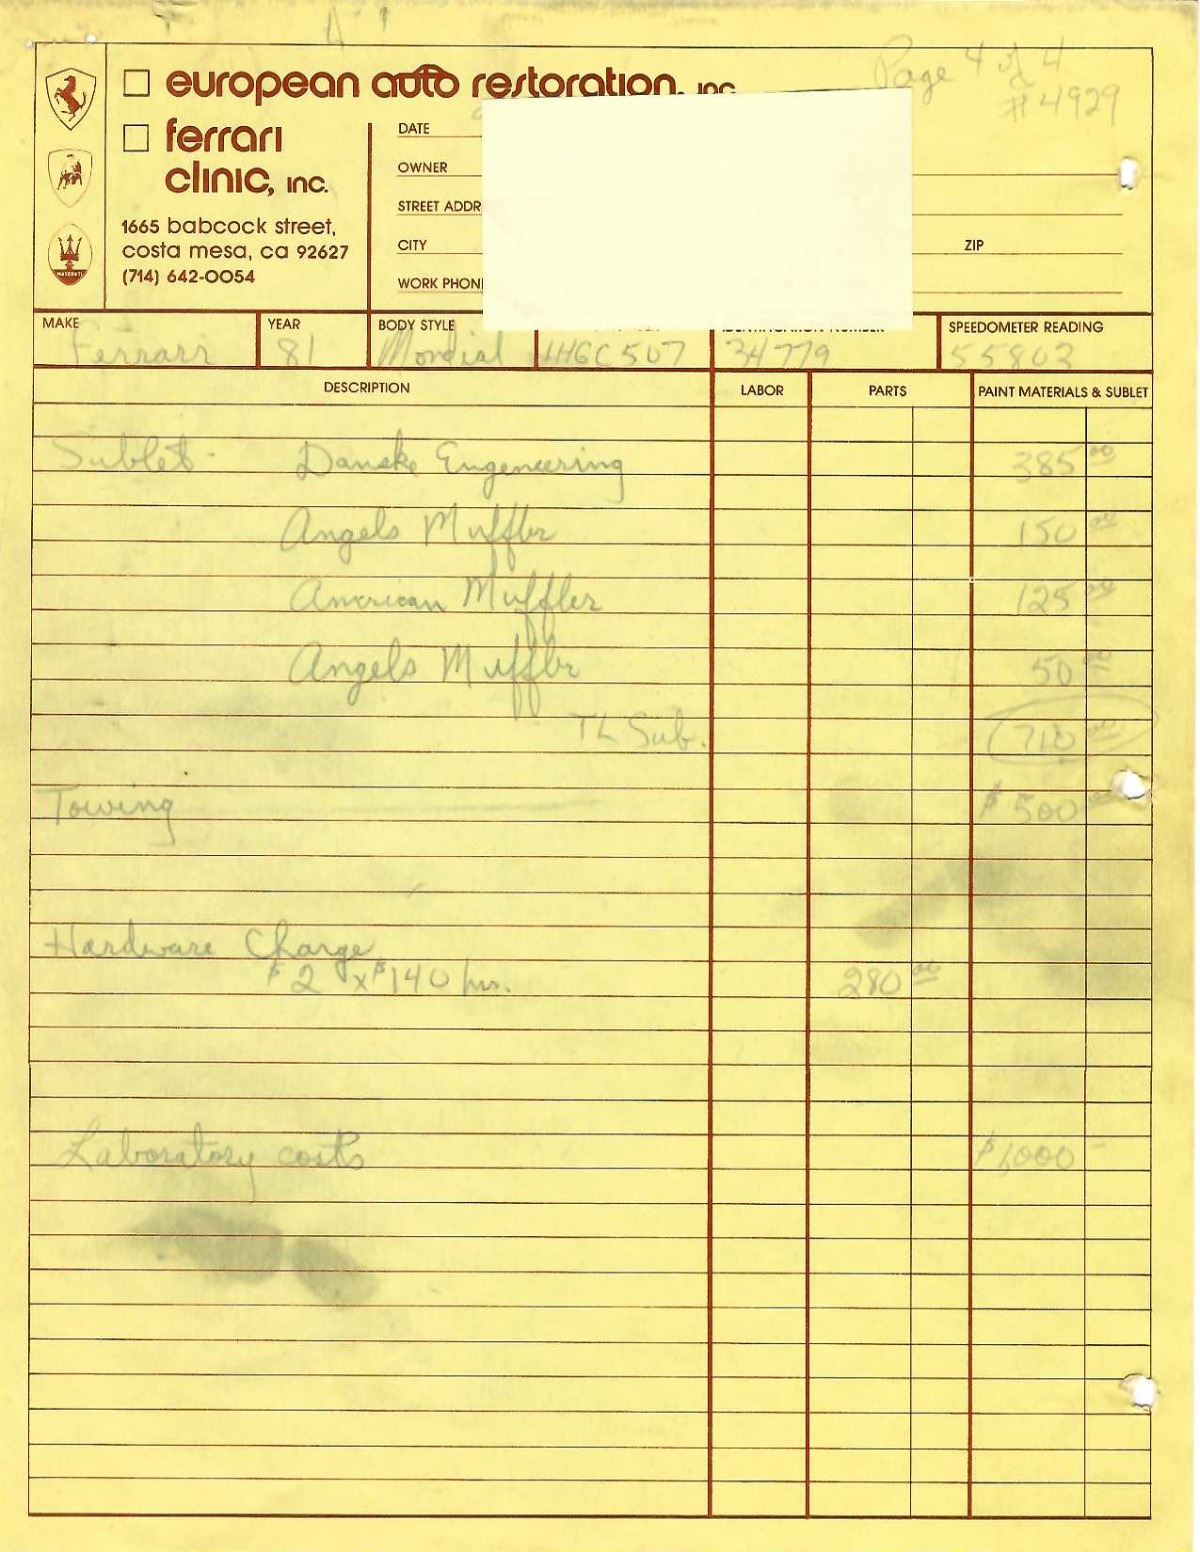 Page 4 of 4
#4929
european auto restoration, inc.
ferrari
clinic, inc.
1665 babcock street,
costa mesa, ca 92627
(714) 642-0054
DATE
OWNER
STREET ADDR
CITY
ZIP
WORK PHON
MASERATI
MAKE YEAR BODY STYLE IDENTIFICATION NUMBER SPEEDOMETER READING
Ferrari 81 Mondial 1HGC507 34779 55803
DESCRIPTION LABOR PARTS PAINT MATERIALS & SUBLET
Sublet - Danske Engeneering 385 00
Angels Muffler 150 00
American Muffler 125 00
Angels Muffler 50 00
TL Sub. 710 00
Towing $ 500 00
Hardware Charge
$2 x $140 hrs. 280 00
Laboratory costs $1,000 -